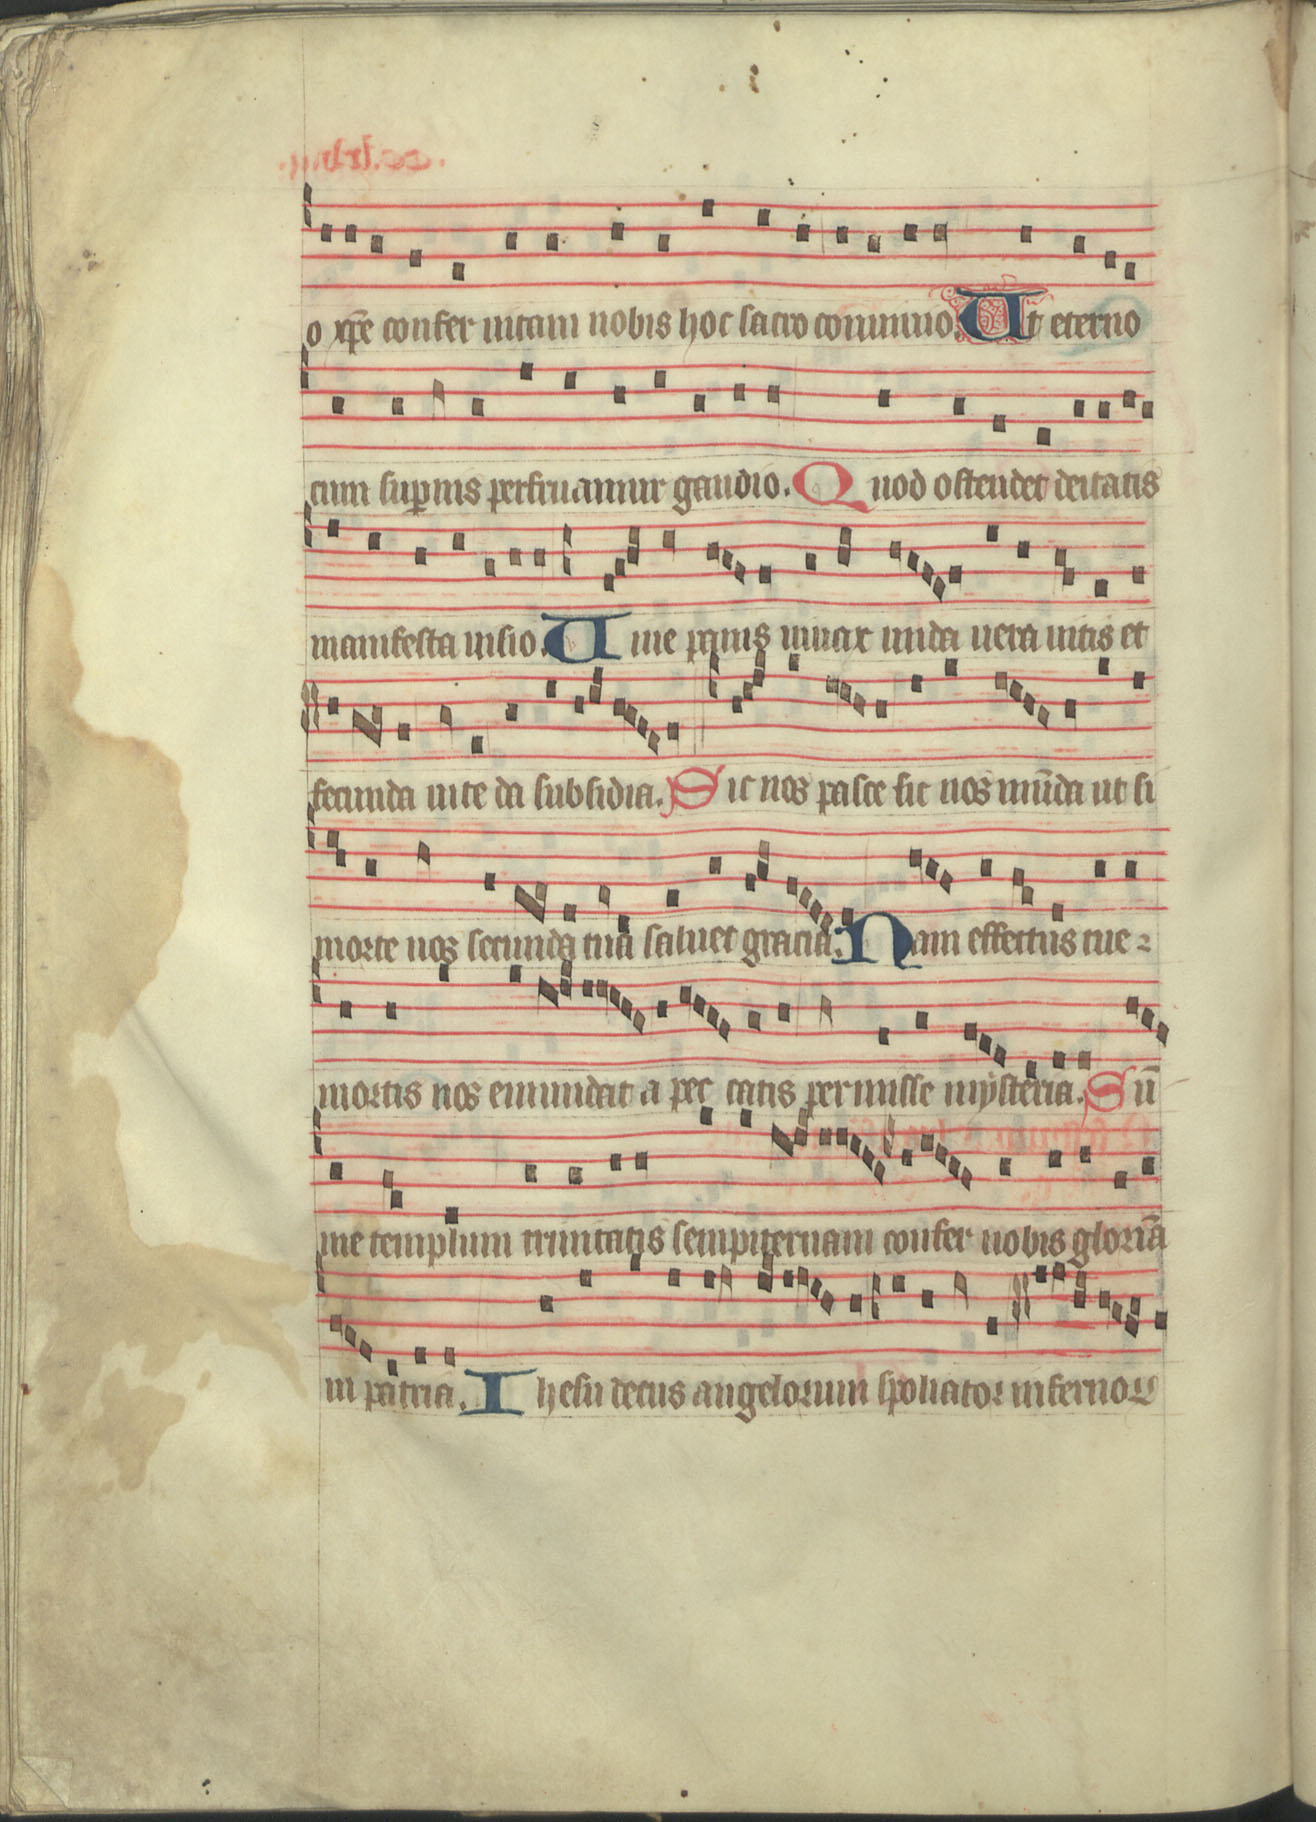 o xp̄e confer uitam nobis hoc sacro conuiuio. Ut eterno
cum suꝑnis perfruamur gaudio. Quod ostendet deitatis
manifesta uisio. Uiue panis uiuax unda uera uitis et
fecunda uite da subsidia. Sic nos pasce sic nos mūda ut si
morte nos secunda tua saluet gracia. Nam effectus tue
mortis nos emundat a pec catis per misse mysteria. Sū
me templum trinitatis sempiternam confer nobis gloriā
in patria. Ihesu decus angelorum spoliator infernoꝝ